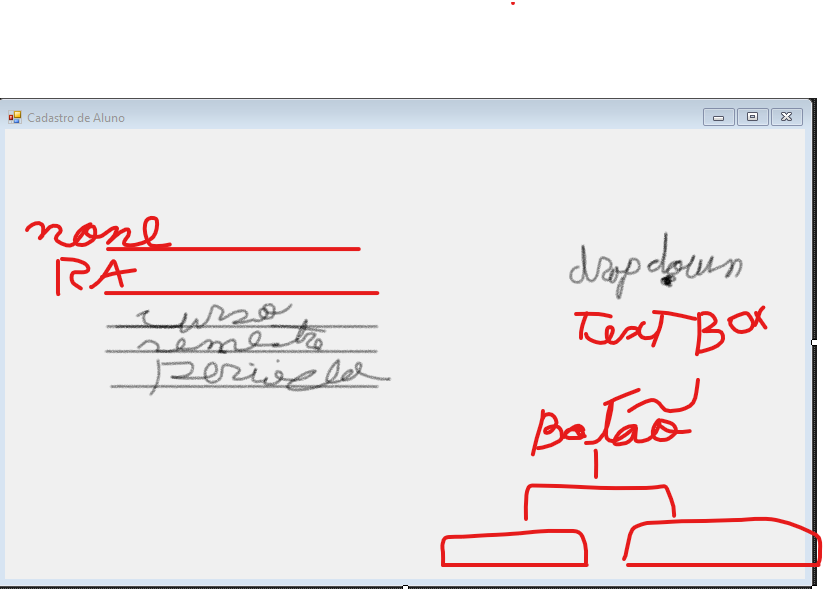 Cadastro de Aluno
nome
RA
curso
semestre
Periodo
dropdown
Text Box
Botão